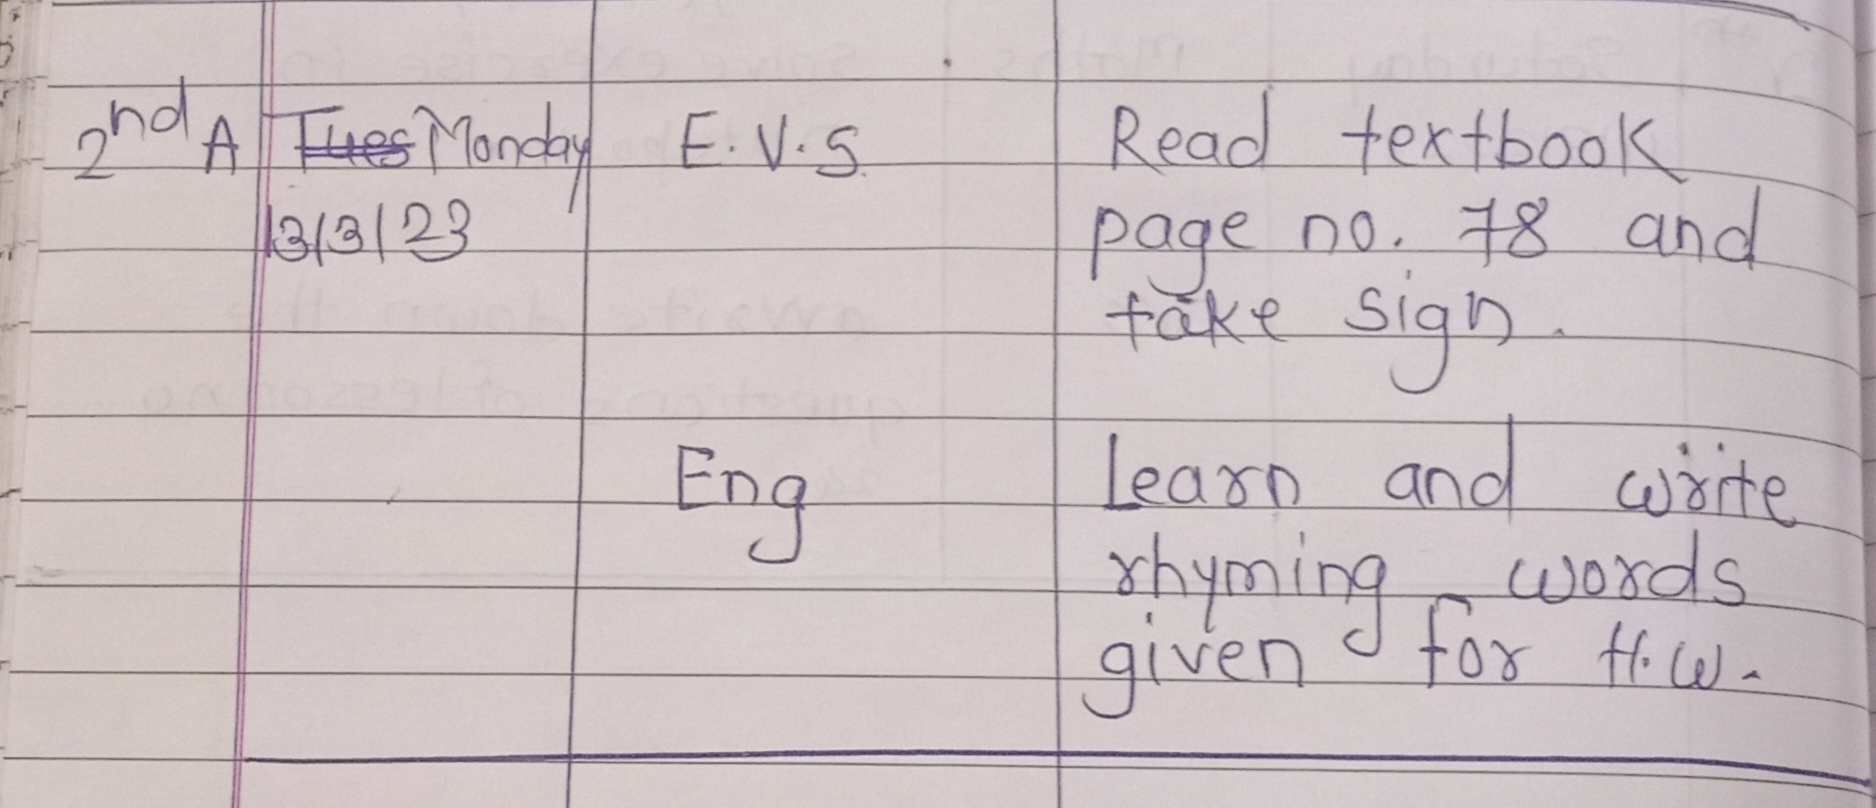 2nd A Tues Monday E.V.S. Read textbook
13/3/23 page no. 78 and
take sign.
Eng Learn and write
rhyming words
given for H.W.